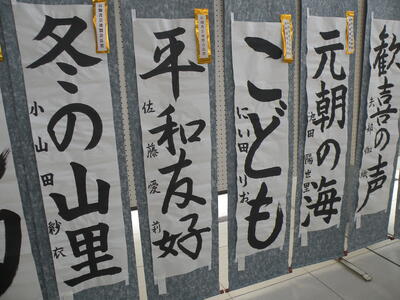 冬の山里
小山田紗衣
平和友好
佐藤愛莉
こども
にい田りお
元朝の海
歓喜の声